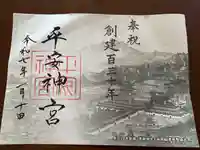 奉祝
創建百三十年
平安神宮
令和七年 月十四日